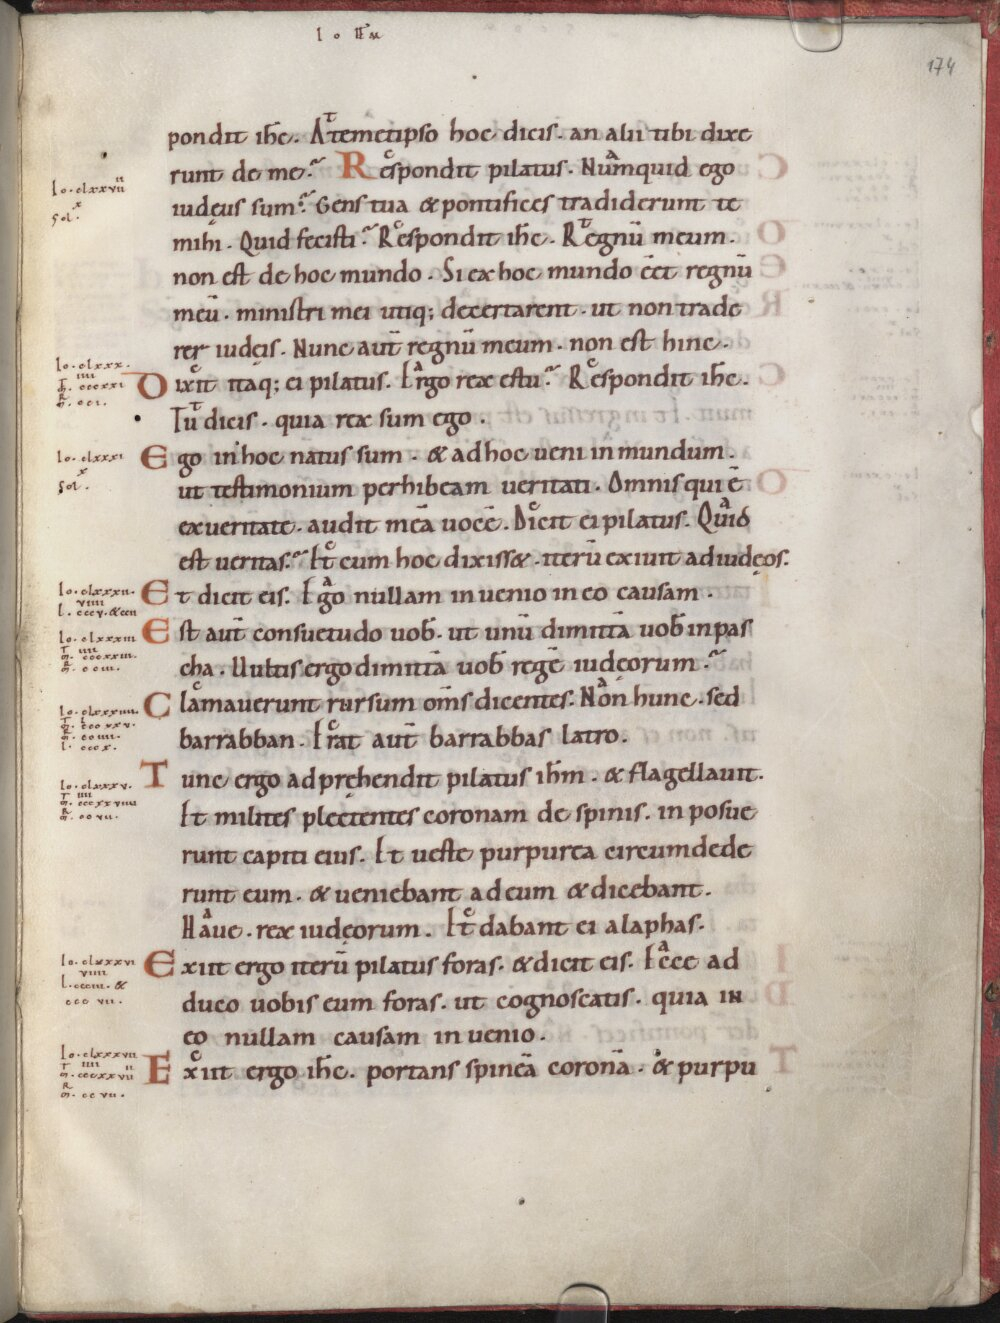 IOHAN
174
pondit ihc. A temetipso hoc dicis. an alii tibi dixe
runt de me. Respondit pilatus. Numquid ego
iudęus sum. Gens tua & pontifices tradiderunt te
mihi. Quid fecisti. Respondit ihc. Regnū meum.
non est de hoc mundo. Si ex hoc mundo eēt regnū
meū. ministri mei utiq; decertarent. ut non trade
rer iudęis. Nunc aut̄ regnū meum. non est hinc.
Dixit itaq; ei pilatus. Ergo rex es tu. Respondit ihc.
Tu dicis. quia rex sum ego.
Ego in hoc natus sum. & ad hoc ueni in mundum.
ut testimonium perhibeam ueritati. Omnis qui ē
ex ueritate. audit meā uocē. Dicit ei pilatus. Quid
est ueritas. Et cum hoc dixiss&. iterū exiuit ad iudęos.
Et dicit eis. Ego nullam inuenio in eo causam.
Est aut̄ consuetudo uob̄. ut unū dimittā uob̄ in pas
cha. Uultis ergo dimittā uob̄ regē iudęorum.
Clamauerunt rursum om̄s dicentes. Non hunc. sed
barrabban. Erat aut̄ barrabbas latro.
Tunc ergo adpręhendit pilatus ihm̄. & flagellauit.
Et milites plectentes coronam de spinis. inposue
runt capiti eius. Et ueste purpurea circumdede
runt eum. & ueniebant ad eum & dicebant.
Haue. rex iudęorum. Et dabant ei alaphas.
Exiit ergo iterū pilatus foras. & dicit eis. Ecce ad
duco uobis eum foras. ut cognoscatis. quia in
eo nullam causam inuenio.
Exiit ergo ihc. portans spineā coronā. & purpu